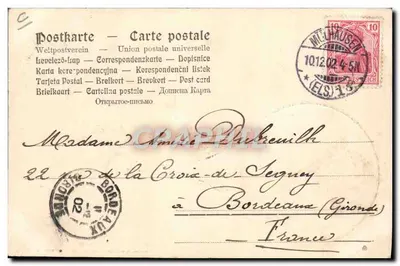 Postkarte — Carte postale
Weltpostverein — Union postale universelle
Levelező-Lap — Correspondenzkarte — Dopisnice
Karta korespondencyjna — Korespondenční lístek
Tarjeta Postal — Brefkort — Brevkort — Briefkaart
Briefkaart — Cartolina postale — Дописна Карта
Открытое письмо
MÜLHAUSEN
10.12.02.4-5N.
* (ELS.) 1 *
10 10
Madame
22 rue de la Croix-de Seguey
à Bordeaux (Gironde)
France
BORDEAUX
GIRONDE
02